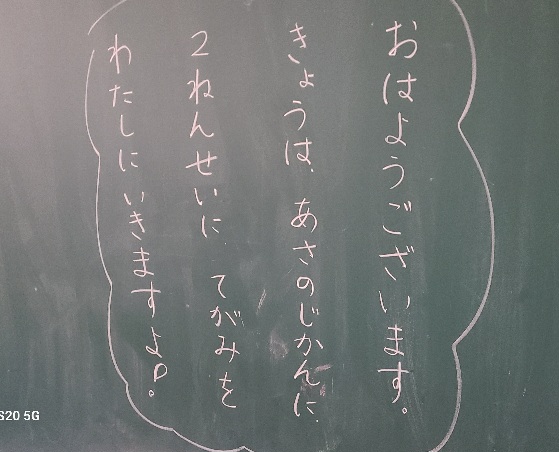 おはようございます。
きょうは、あさのじかんに、
2ねんせいに てがみを
わたしにいきますよ。
S20 5G